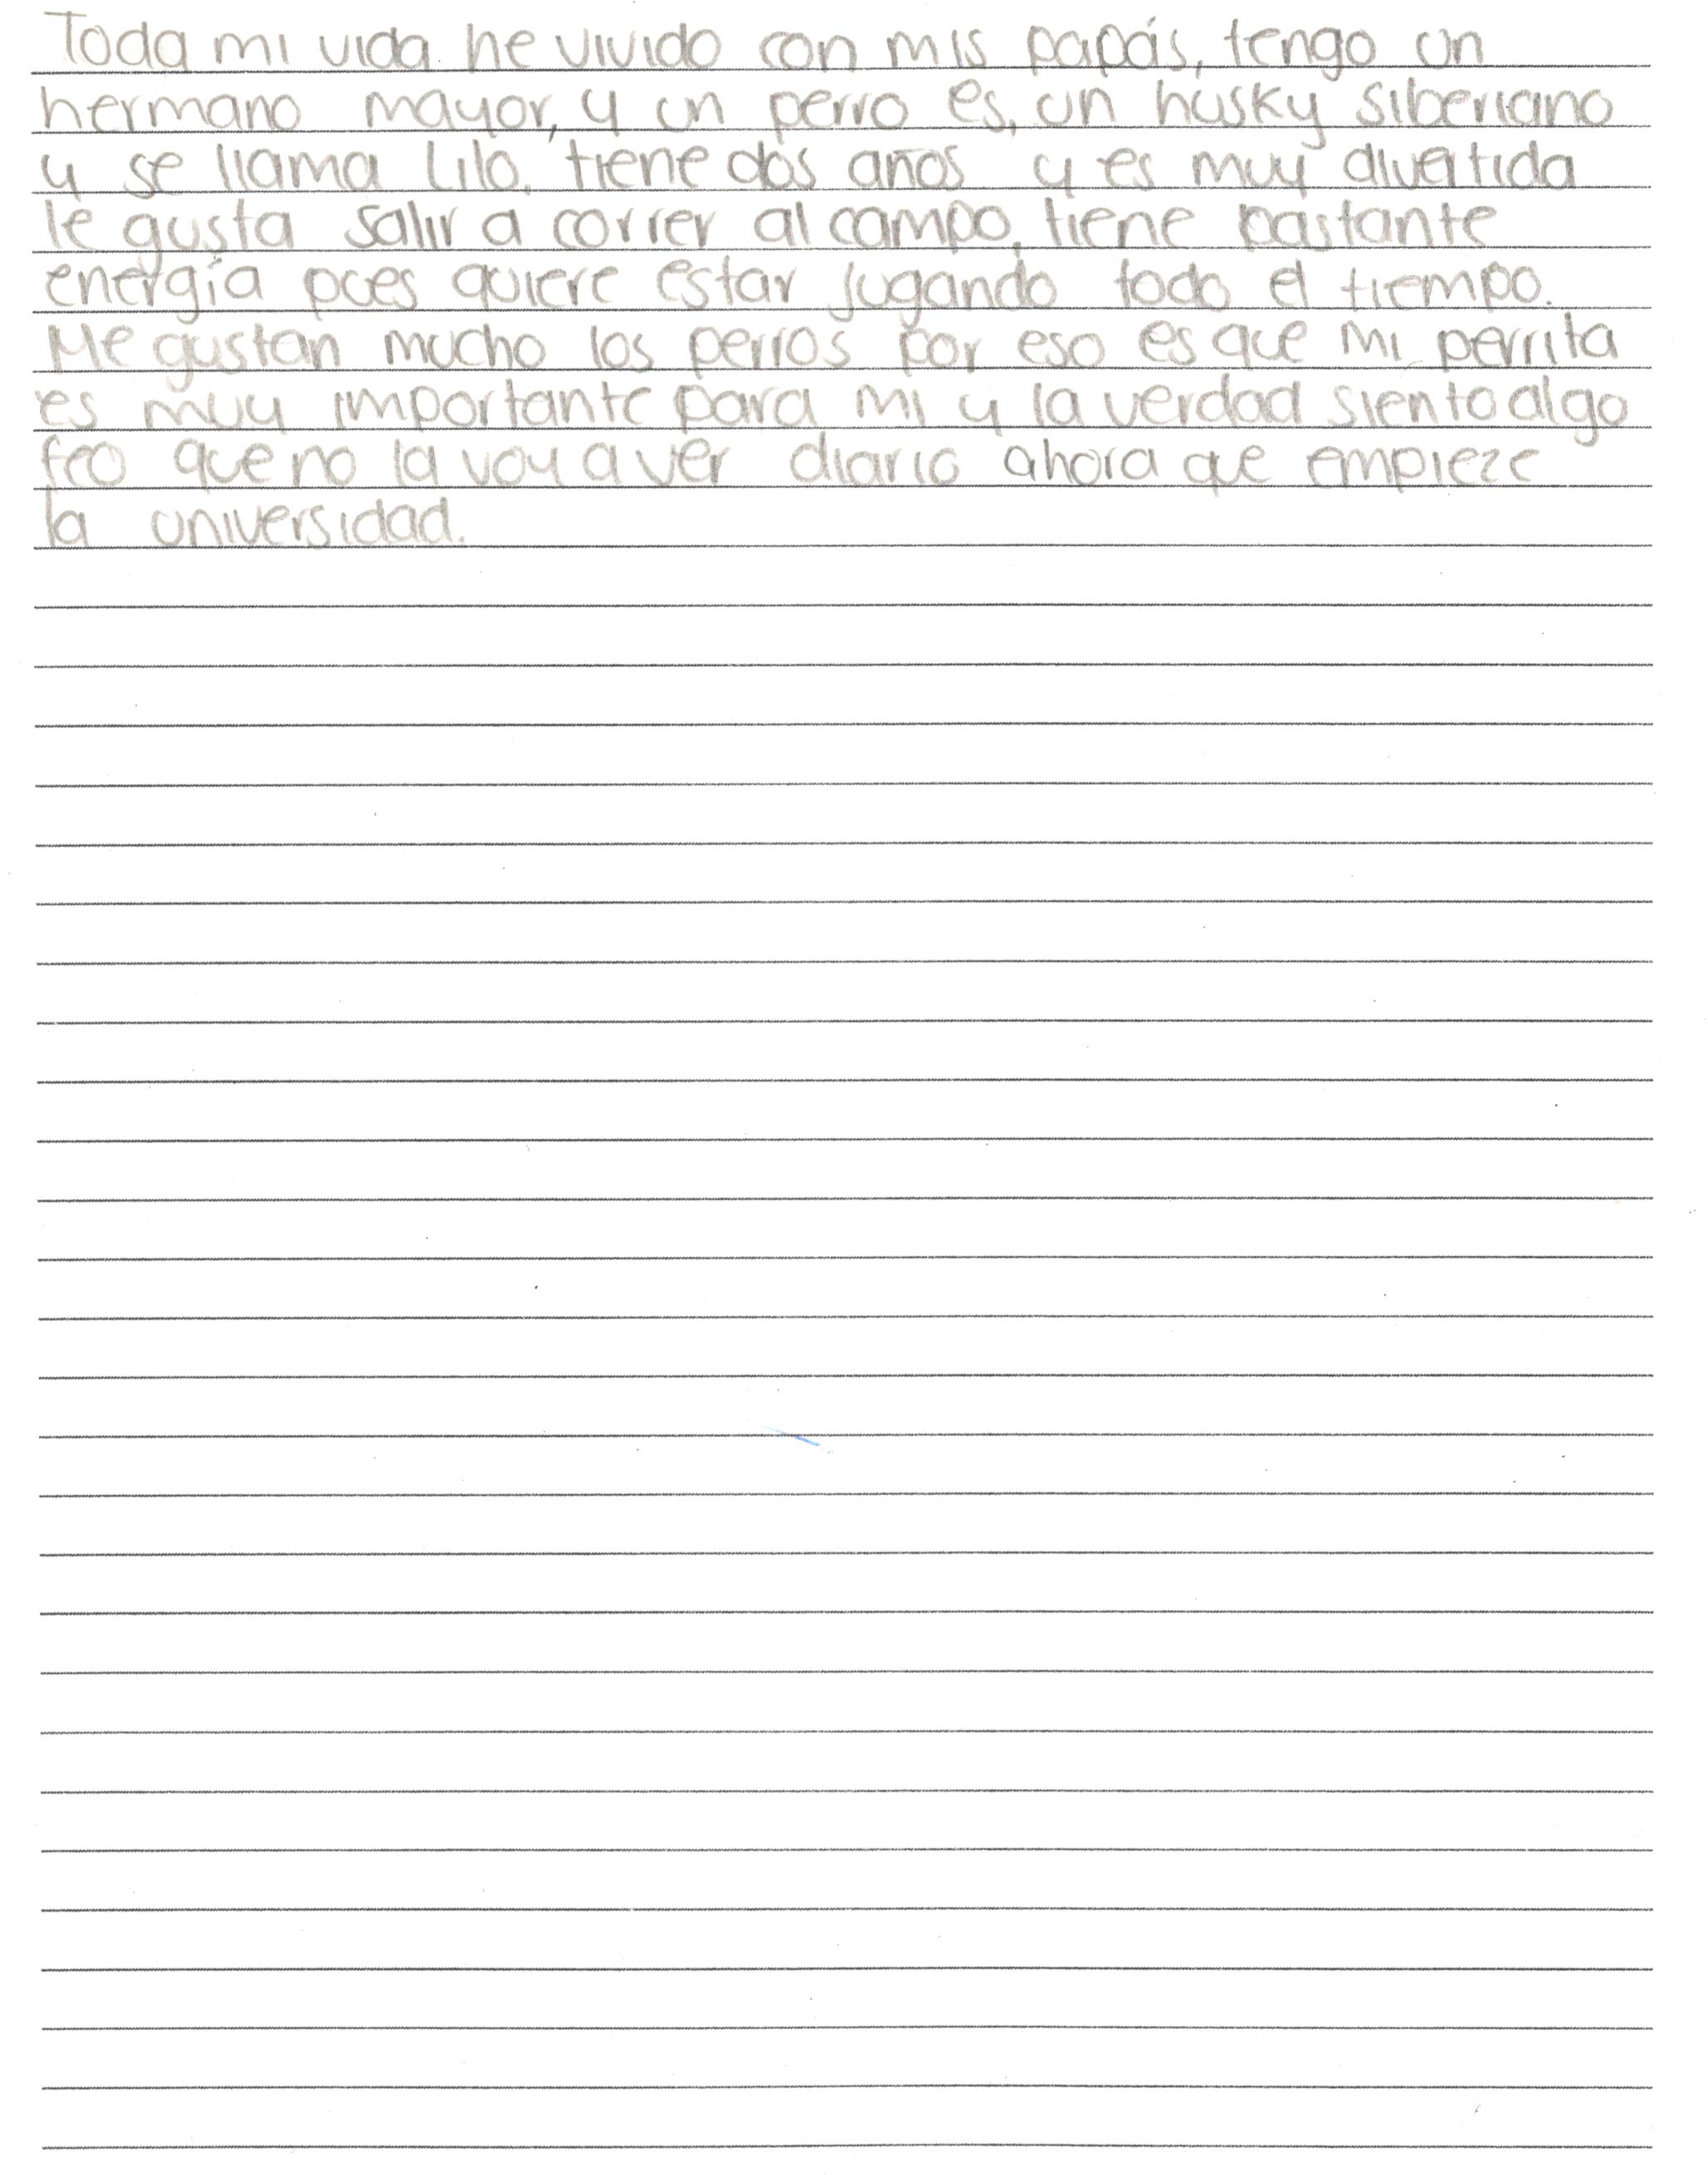 Toda mi vida he vivido con mis papás, tengo un
hermano mayor, y un perro es, un husky siberiano
y se llama Lilo. tiene dos años y es muy divertida
le gusta salir a correr al campo, tiene bastante
energía pues quiere estar jugando todo el tiempo.
Me gustan mucho los perros por eso es que mi perrita
es muy importante para mi y la verdad siento algo
feo que no la voy a ver diario ahora que empieze
la universidad.